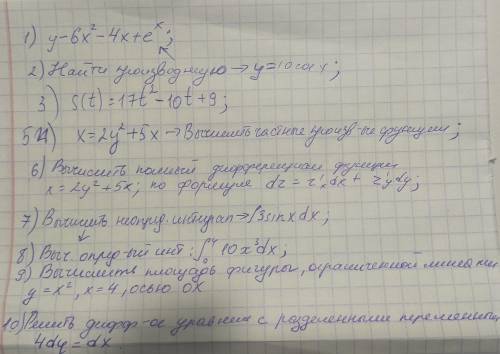 1) y-6x²-4x+eˣ;
2) Найти производную → y=10cos x;
3) S(t)=17t²-10t+9;
54) x=2y²+5x → Вычислить частные произв-ые функции;
6) Вычислить полный дифференциал функции
x=2y²+5x; по формуле dz=z'ₓdx+z'ydy;
7) Вычислить неопрд. интеграл → ∫3sinxdx;
8) Выч. опред-ый инт: ∫₀⁴ 10x³dx;
9) Вычислить площадь фигуры, ограниченной линиями
y=x², x=4, осью OX
10) Решить дифф-ое уравнение с разделенными переменными
4dy=dx